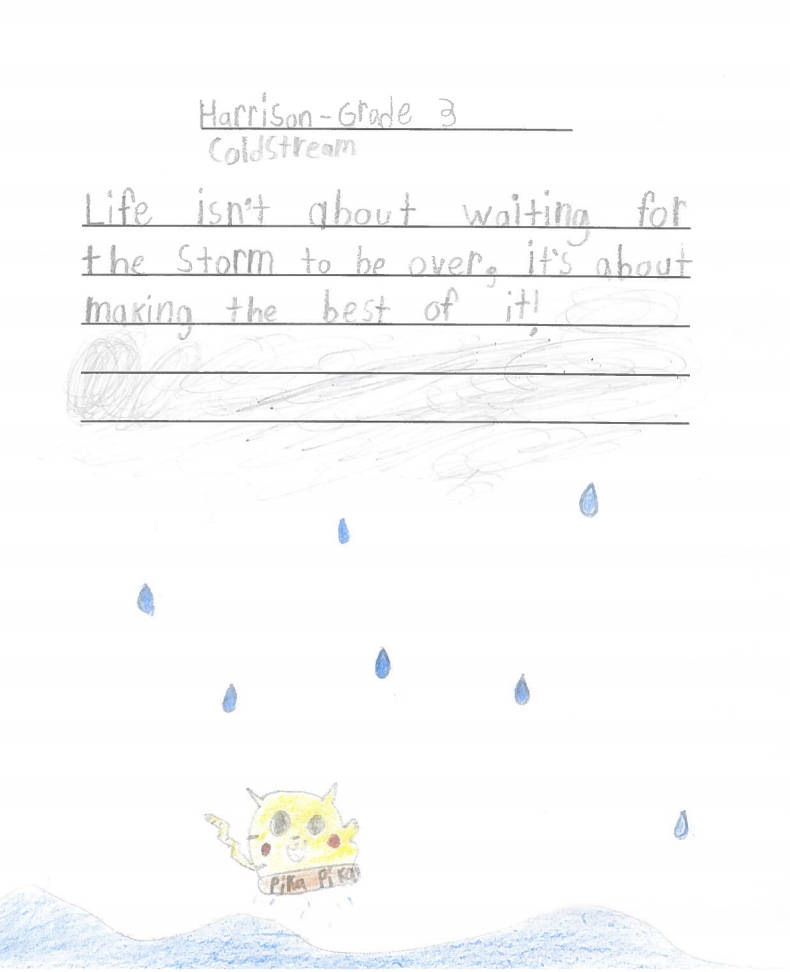 Harrison-Grade 3
ColdStream
Life isn't about waiting for
the Storm to be over, it's about
making the best of it!
Pika Pika